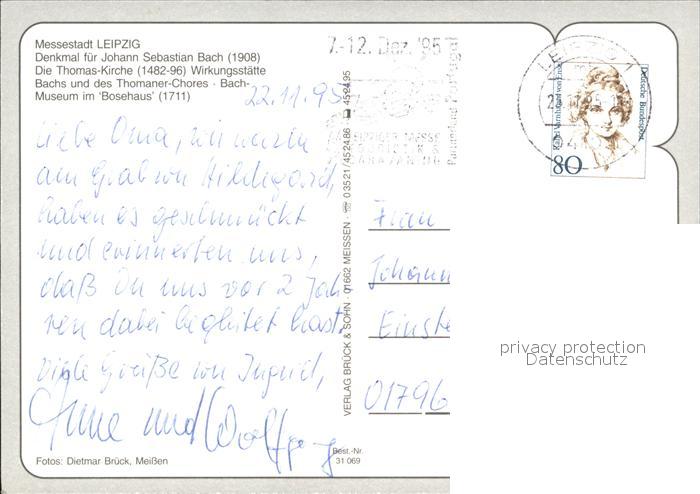 Messestadt LEIPZIG
Denkmal für Johann Sebastian Bach (1908)
Die Thomas-Kirche (1482-96) Wirkungsstätte
Bachs und des Thomaner-Chores · Bach-
Museum im 'Bosehaus' (1711)
22.11.95
Liebe Oma, wir waren
am Grab von Hildegard,
haben es geschmückt
und erinnerten uns,
daß Du uns vor 2 Jah-
ren dabei begleitet hast.
Viele Grüße von Ingrid,
und Wolfgang
Fotos: Dietmar Brück, Meißen
VERLAG BRÜCK & SOHN · 01662 MEISSEN · ☏ 03521/452486 45 24 95
Best.-Nr.
31 069
7.-12. Dez. '95
Partnerland Portugal
LEIPZIG 1
Deutsche Bundespost
80
Frau
Johann
Einste
01796
privacy protection
Datenschutz